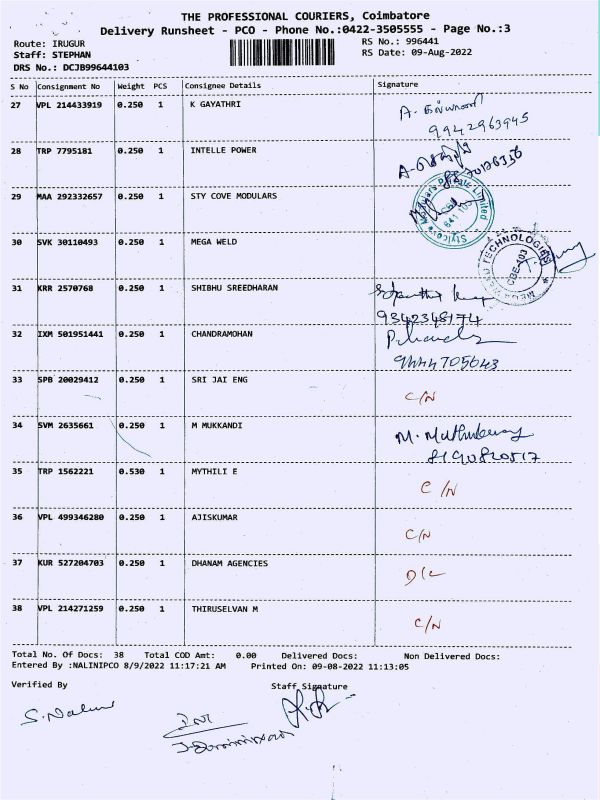 THE PROFESSIONAL COURIERS, Coimbatore
Delivery Runsheet - PCO - Phone No.:0422-3505555 - Page No.:3
Route: IRUGUR RS No.: 996441
Staff: STEPHAN RS Date: 09-Aug-2022
DRS No.: DCJB99644103
S No Consignment No Weight PCS Consignee Details Signature
27 VPL 214433919 0.250 1 K GAYATHRI
9942963945
28 TRP 7795181 0.250 1 INTELLE POWER
29 MAA 292332657 0.250 1 STY COVE MODULARS
30 SVK 30110493 0.250 1 MEGA WELD
TECHNOLOGIES
31 KRR 2570768 0.250 1 SHIBHU SREEDHARAN
9342348174
32 IXM 501951441 0.250 1 CHANDRAMOHAN
9444705643
33 SPB 20029412 0.250 1 SRI JAI ENG C/N
34 SVM 2635661 0.250 1 M MUKKANDI
8190820517
35 TRP 1562221 0.530 1 MYTHILI E C/N
36 VPL 499346280 0.250 1 AJISKUMAR C/N
37 KUR 527204703 0.250 1 DHANAM AGENCIES D/L
38 VPL 214271259 0.250 1 THIRUSELVAN M C/N
Total No. Of Docs: 38 Total COD Amt: 0.00 Delivered Docs: Non Delivered Docs:
Entered By :NALINIPCO 8/9/2022 11:17:21 AM Printed On: 09-08-2022 11:13:05
Verified By Staff Signature